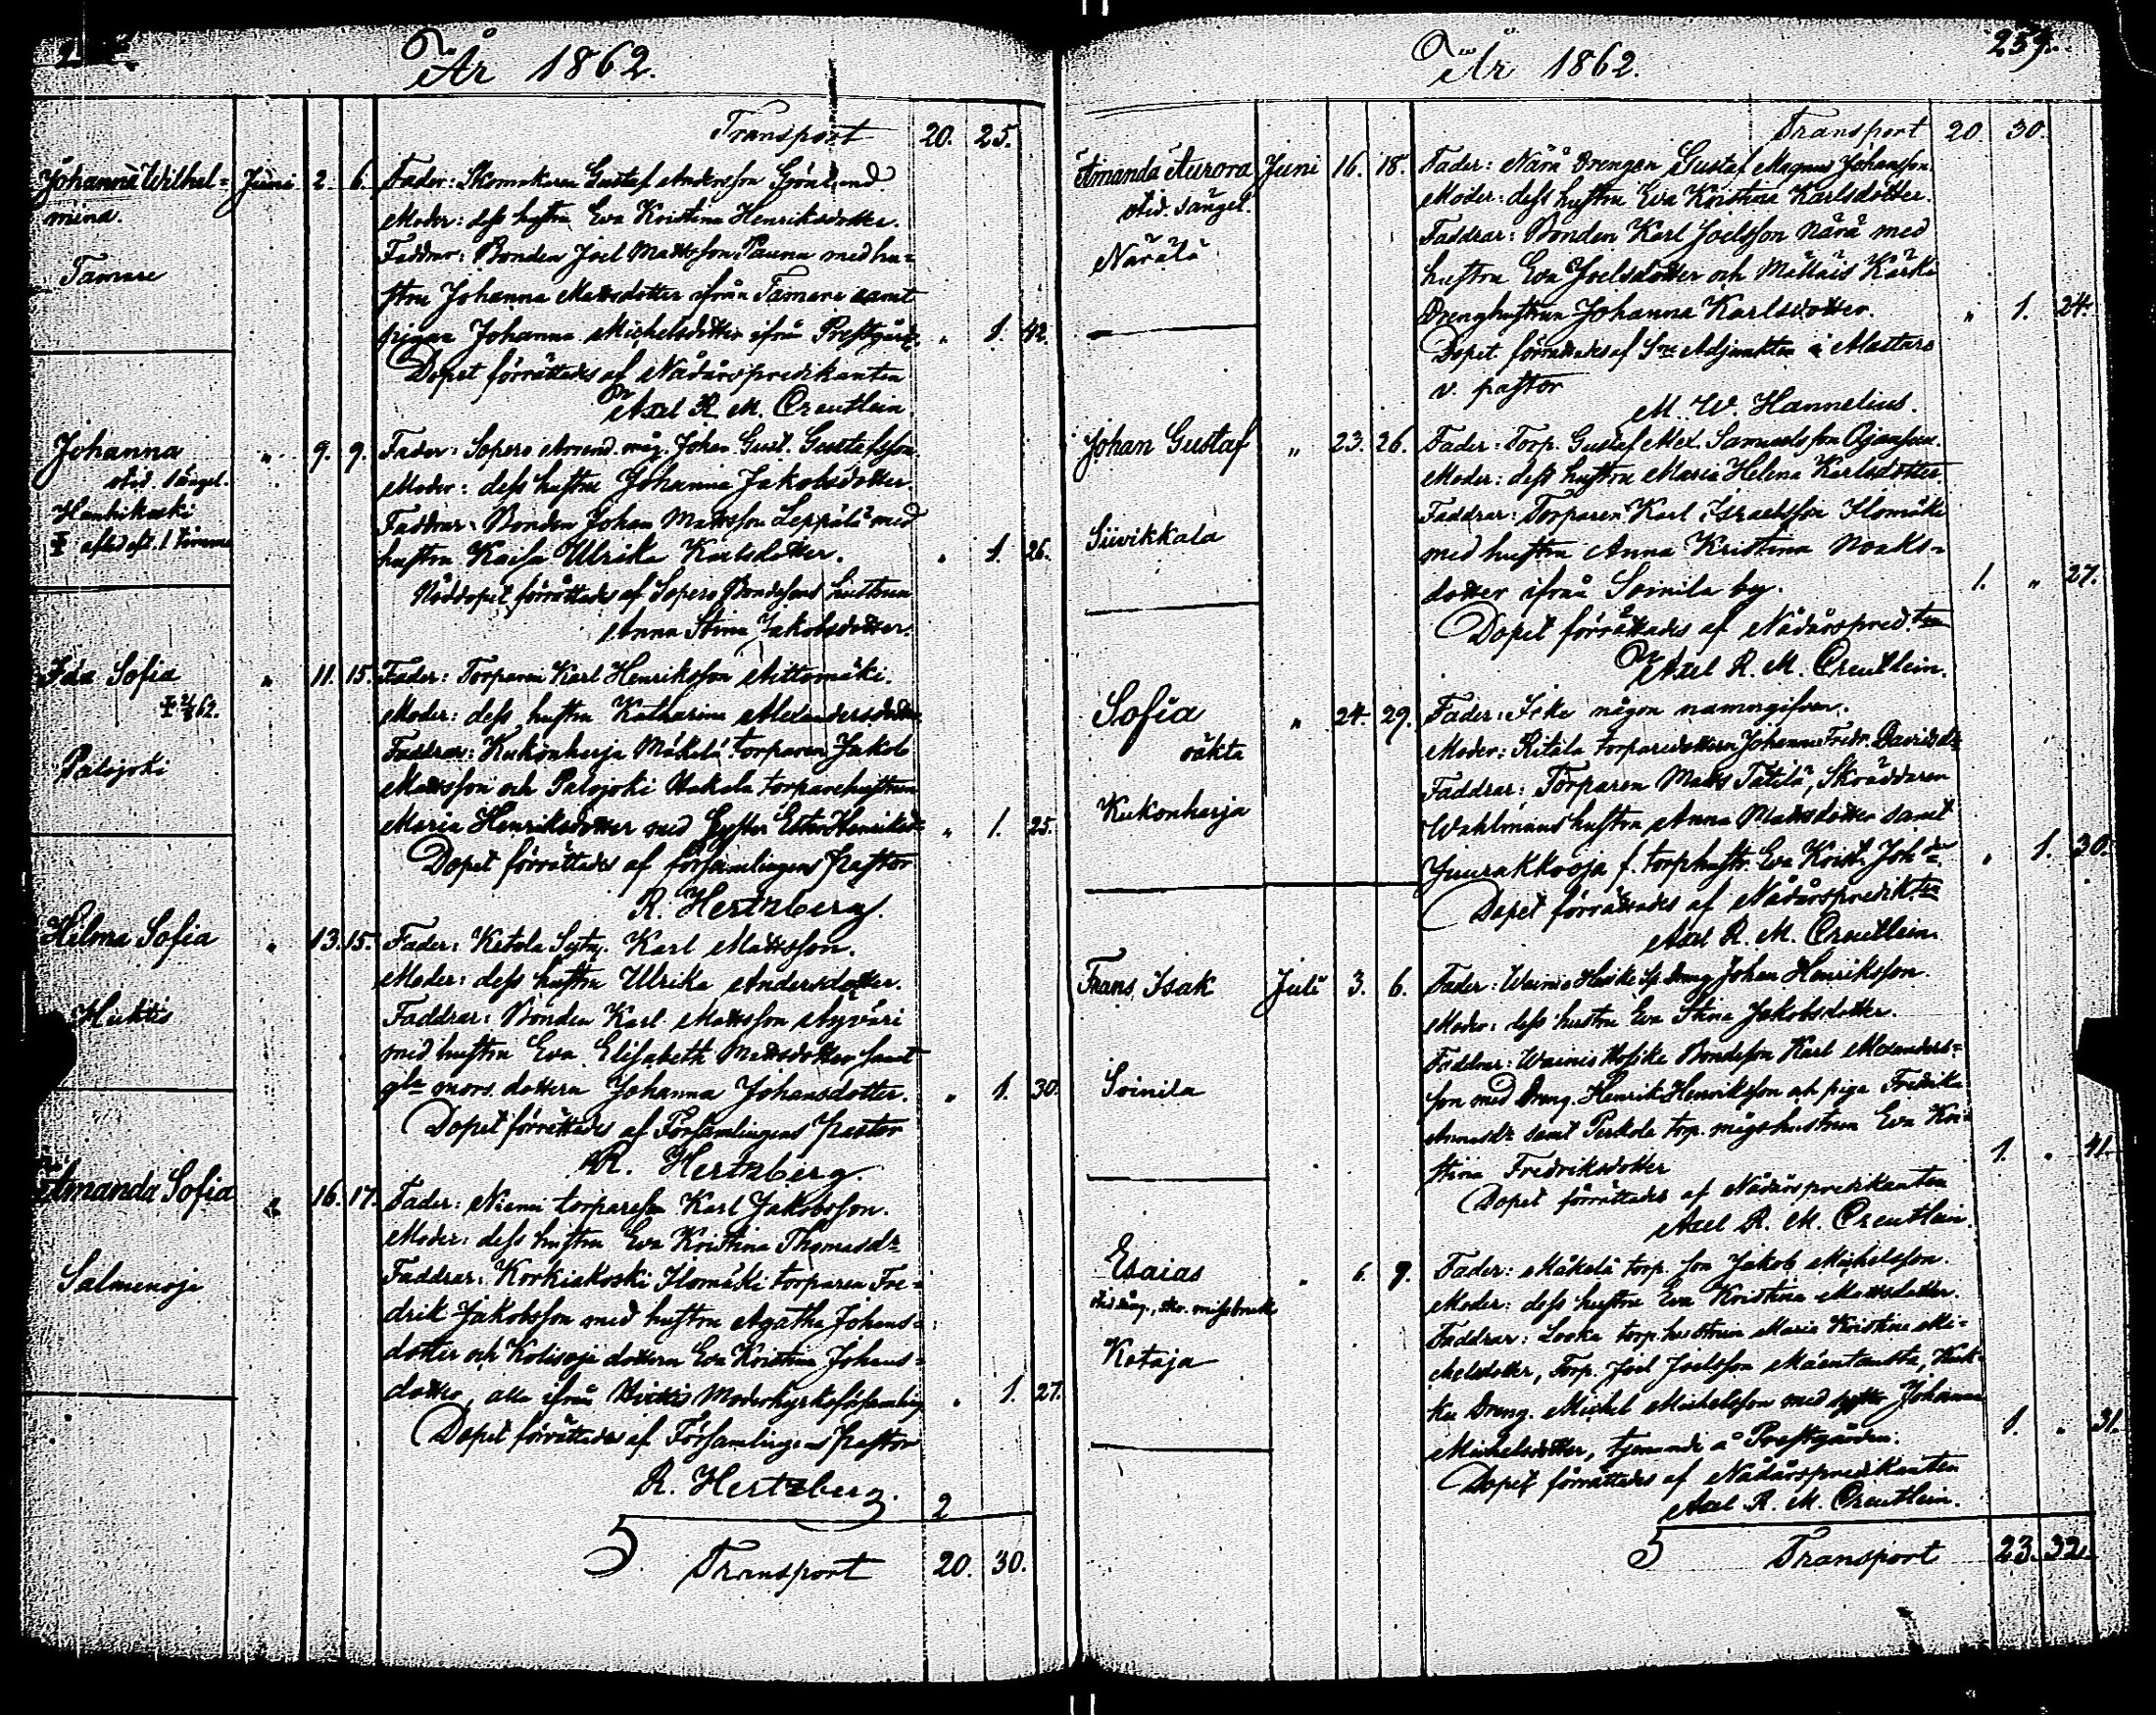 År 1862.
Transport 20. 25.
Johanna Wilhel= Juni 2. 6. Fader: Skomakaren Gustaf Andersson Grönlund
mina. Moder: dess hustru Eva Kristina Henriksdotter.
Faddrar: Bonden Joel Mattsson Pauna med hu=
Tamare
stru Johanna Mattsdotter ifrån Tamare samt
pigan Johanna Michelsdotter ifrån Prestgård. " 1. 42.
Dopet förrättades af Nådårspredikanten
Axel R. M. Creutlein.
Johanna " 9. 9. Fader: Sopero Arrend. måg. Johan Gust. Gustafsson.
Moder: dess hustru Johanna Jakobsdotter.
Faddrar: Bonden Johan Mattsson Leppälä med
hustru Kaisa Ulrika Karlsdotter. " 1. 26.
Nöddopet förrättades af Sopero Bondesons hustrun
Anna Stina Jakobsdotter.
Ida Sofia " 11. 15. Fader: Torparen Karl Henriksson Aittomäki.
Moder: dess hustru Katharina Alexandersdotter
Faddrar: Kukonharja Mäkelä torparen Jakob
Palojoki
Mattsson och Palojoki Hakala torparehustrun
Maria Henriksdotter med Syster Ester Henriksd= " 1. 25.
Dopet förrättades af församlingens Pastor
R. Hertzberg.
Hilma Sofia " 13. 15. Fader: Ketola Sytn. Karl Mattsson.
Moder: dess hustru Ulrika Andersdotter.
Faddrar: Bonden Karl Mattsson Äyväri
med hustru Eva Elisabeth Mattsdotter samt
gla mors dottern Johanna Johansdotter. " 1. 30.
Dopet förrättades af Församlingens Pastor
R. Hertzberg.
Amanda Sofia " 16. 17. Fader: Niemi torpareson Karl Jakobsson.
Moder: dess hustru Eva Kristina Thomasdr
Salmenoja
Faddrar: Korkiakoski Ilomäki torparen Fre=
drik Jakobsson med hustru Agatha Johans=
dotter och Kolisoja dottern Eva Kristina Johans=
dotter, alla ifrån Moderkyrkoförsamling " 1. 27.
Dopet förrättades af Församlingens Pastor
R. Hertzberg.
2
5 Transport 20. 30.
259.
År 1862.
Transport 20 30.
Amanda Aurora Juni 16. 18. Fader: Närä Drengen Gustaf Magnus Johansson.
Moder: dess hustru Eva Kristina Karlsdotter.
Faddrar: Bonden Karl Joelsson Närä med
hustru Eva Joelsdotter och Mälläis Kärki
Drenghustrun Johanna Karlsdotter. " 1. 24.
Dopet förrättades af Adjunkten i Mattars
v. pastor
M. W. Hannelius.
Johan Gustaf " 23. 26. Fader: Torp. Gustaf Alex. Samuelsson Ojansuu.
Moder: dess hustru Maria Helena Karlsdotter.
Siivikkala
Faddrar: Torparen Karl Israelsson Ilomäki
med hustru Anna Kristina Noaks=
dotter ifrån Soinila by. 1. " 27.
Dopet förrättades af Nådårspred.ten
Axel R. M. Creutlein.
Sofia " 24. 29. Fader: Icke någon namngifven.
oäkta
Moder: Ritäla torparedottern Johanna Fredr. Davidsdr
Faddrar: Torparen Matts Tätilä, Skräddaren
Kukonharja
Wahlmans hustru Anna Mattsdotter samt
Juurakkooja f. torphustr. Eva Krist. Johdr " 1. 30.
Dopet förrättades af Nådårspredik.ten
Axel R. M. Creutlein.
Frans Isak Juli 3. 6. Fader: Wainio Dreng Johan Henriksson.
Moder: dess hustru Eva Stina Jakobsdotter.
Soinila
Faddrar: Wainio Bondeson Karl Alexanders=
son med Dreng. Henrik Henriksson och piga Fredrika
samt Perkola torp. mågshustrun Eva Kri=
stina Fredriksdotter 1. " 41.
Dopet förrättades af Nådårspredikanten
Axel R. M. Creutlein.
Esaias " 6. 9. Fader: Mäkelä torp. son Jakob Michelsson.
Moder: dess hustru Eva Kristina Mattsdotter.
Kotaja
Faddrar: torp. hustrun Maria Kristina Mi=
chelsdotter, Torp. Joel Joelsson Mäentausta,
Dreng. Michel Michelsson med syster Johanna
Michelsdotter, tjenande å Prestgården. 1. " 31.
Dopet förrättades af Nådårspredikanten
Axel R. M. Creutlein.
5 Transport 23. 32.